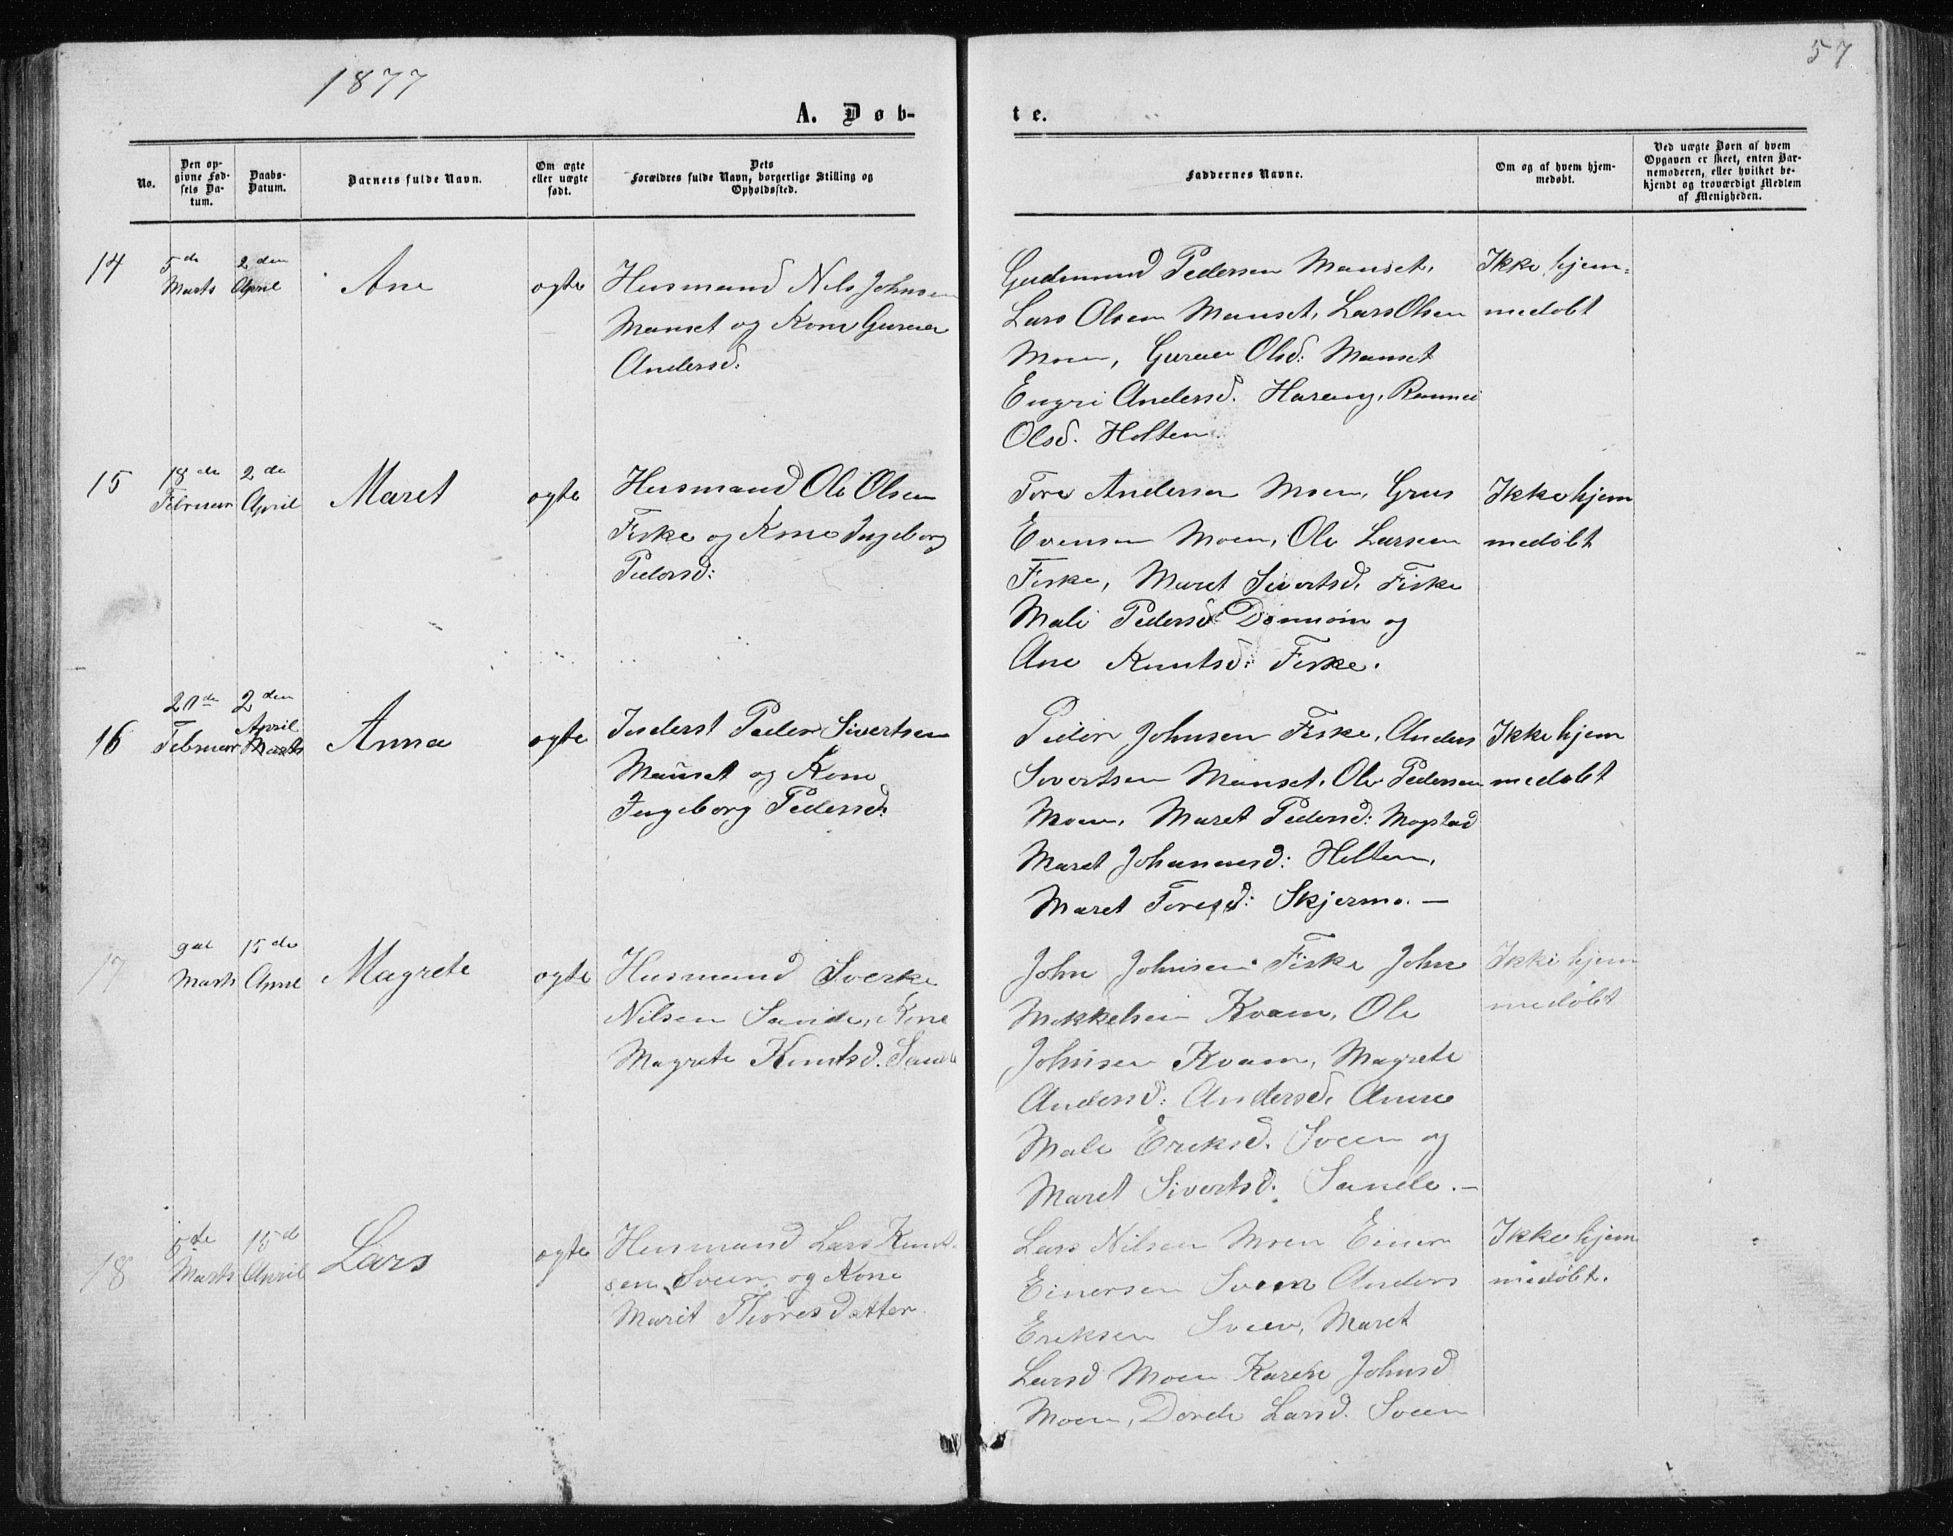 1877
57
A. Døb-
te.
No.
Den op-
givne Fød-
sels Da-
tum.
Daabs-
Datum.
Barnets fulde Navn.
Om ægte
eller uægte
født.
Dets
Forældres fulde Navn, borgerlige Stilling og
Opholdssted.
Faddernes Navne.
Om og af hvem hjem-
medøbt.
Ved uægte Børn af hvem
Opgaven er skeet, enten Bar-
nemoderen, eller hvilket be-
kjendt og troværdigt Medlem
af Menigheden.
14
5de
Marts
2den
April
Ane
ogte
Husmand Nils Johnsen
Manset og Kone Guruer
Andersd:
Gudmund Pedersen Manset,
Lars Olsen Manset, Lars Olsen
Moen, Guruer Olsd: Manset
Engri Andersd. Harang,
Olsd. Holten
Ikke hjem-
medøbt
15
18de
Februar
2de
April
Maret
ogte
Husmand Ole Olsen
Fiske og Kone Ingeborg
Pedersd:
Tore Andersen Moen,
Evensen Moen, Ole Larsen
Fiske, Maret Sivertsd. Fiske
Mali Pedersd.
og
Ane Knutsd: Fiske.
Ikke hjem
medøbt
16
20de
Februar
2den
April
Marts
Anna
ogte
Inderst Peder Sivertsen
Manset og Kone
Ingeborg Pedersd:
Peder Johnsen Fiske, Anders
Sivertsen Manset, Ole Pedersen
Moen, Maret Pedersd: Mogstad
Maret Johannesd: Holten,
Maret Toresd: Skjermo. —
Ikke hjem
medøbt
17
9de
Marts
15de
April
Magrete
ogte
Husmand Sverke
Nilsen Sande, Kone
Magrete Knutsd. Sande
John Johnsen Fiske John
Mikkelsen Kvam, Ole
Johnsen Kvam, Magrete
Andersd: Andersd. Anne
Mali Eriksd. Sveen og
Maret Sivertsd. Sande. —
Ikke hjem
medøbt
18
Marts
15d
April
Lars
ogte
Husmand Lars Knut-
sen Sveen og Kone
Marit Thoresdatter
Lars Nilsen Moen Einer
Einersen Sveen Anders
Eriksen Sveen, Maret
Larsd Moen Karen Johnsd
Moen, Dorde Larsd. Sveen
Ikke hjem
medøbt.